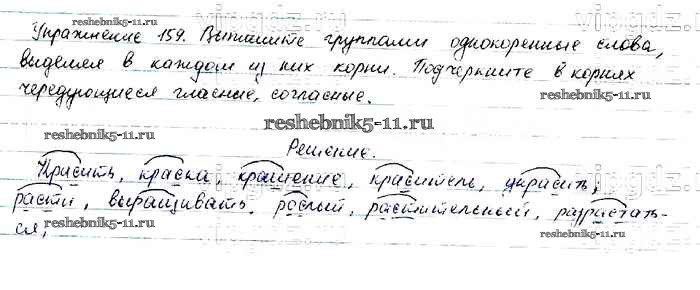 Упражнение 159. Выпишите группами однокоренные слова,
выделяя в каждом из них корни. Подчеркните в корнях
чередующиеся гласные, согласные.
Решение.
Красить, краска, крашение, краситель, украсить,
расти, выращивать, рослый, растительный, разрастать-
ся,
reshebnik5-11.ru
vipgdz.ru
reshebnik5-11.ru
reshebnik5-11.ru
reshebnik5-11.ru
reshebnik5-11.ru
reshebnik5-11.ru